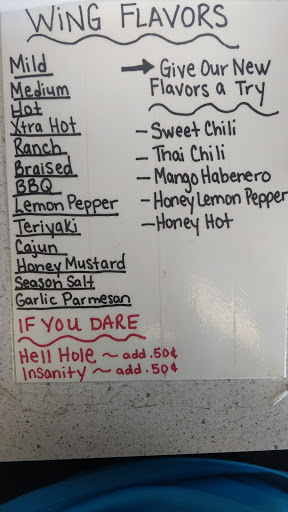 WING FLAVORS
Mild
Medium
Hot
Xtra Hot
Ranch
Braised
BBQ
Lemon Pepper
Teriyaki
Cajun
Honey Mustard
Season Salt
Garlic Parmesan
→ Give Our New
Flavors a Try
- Sweet Chili
- Thai Chili
- Mango Habenero
- Honey Lemon Pepper
- Honey Hot
IF YOU DARE
Hell Hole ~ add .50¢
Insanity ~ add .50¢